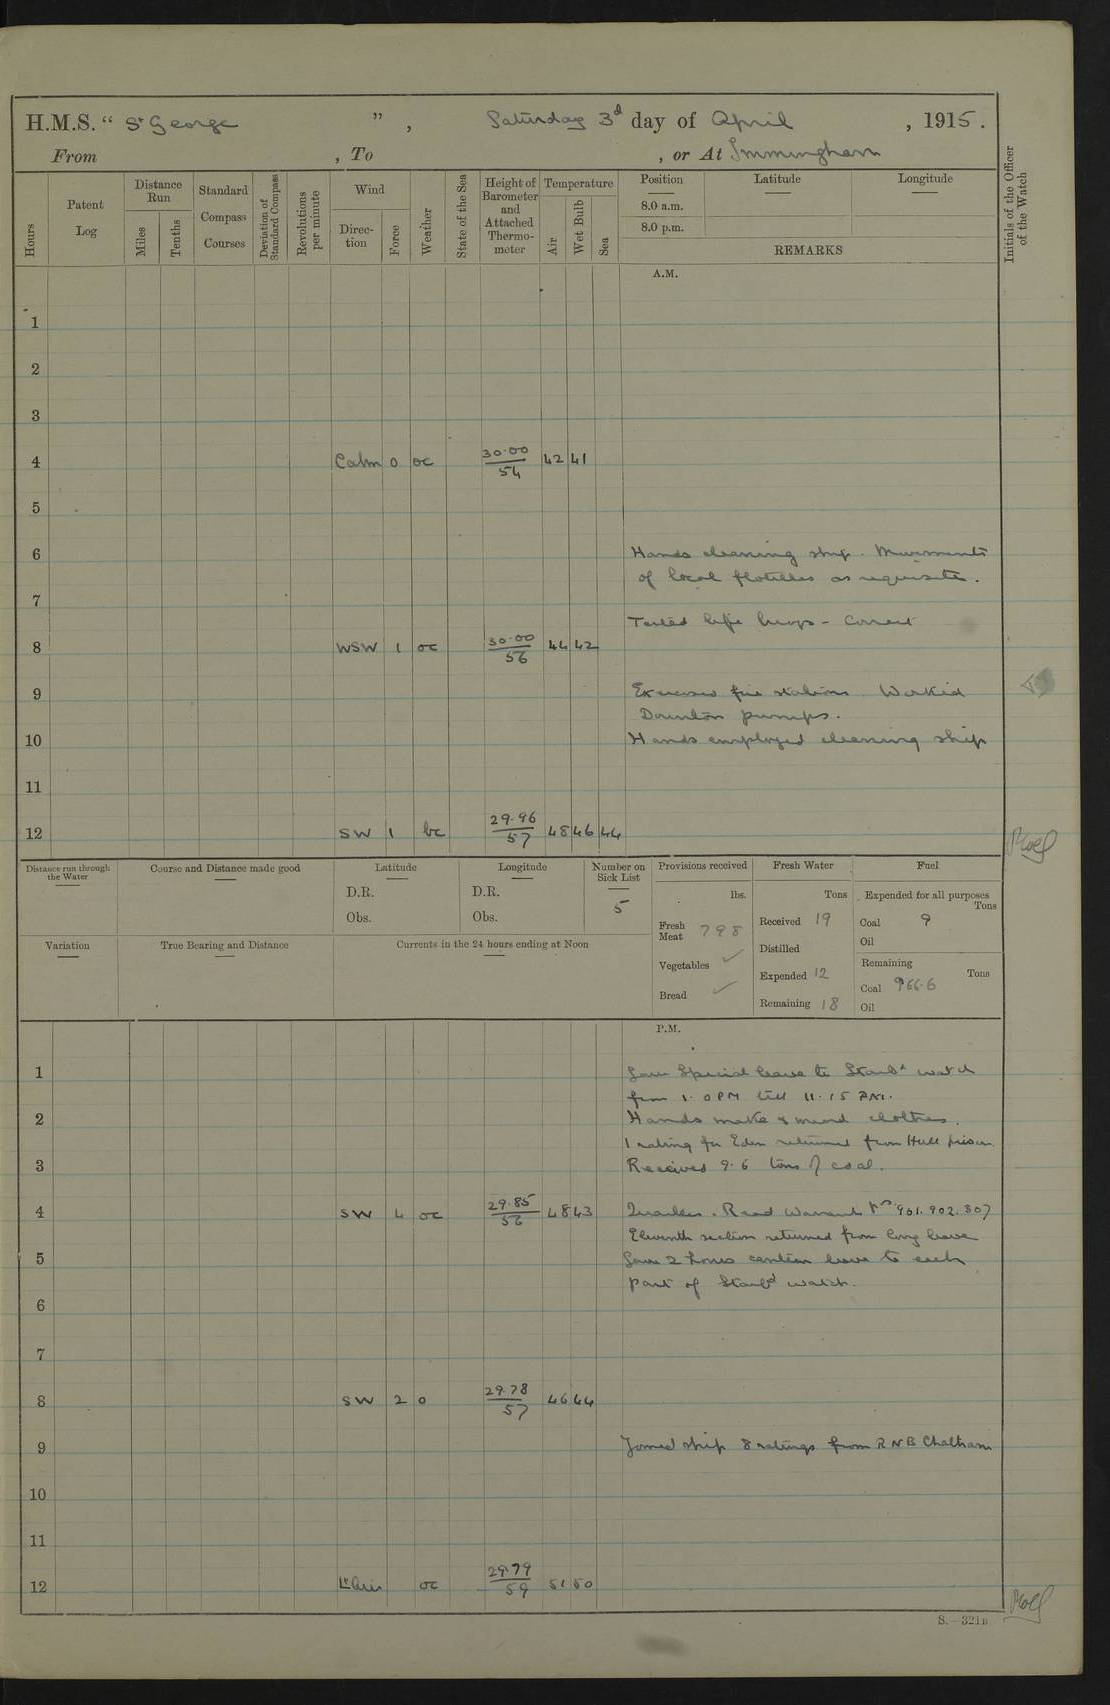 H.M.S. " St George ", Saturday 3d day of April, 1915.
From , To , or At Immingham
Hours
Patent Log
Distance Run
Miles
Tenths
Standard Compass Courses
Deviation of Standard Compass
Revolutions per minute
Wind
Direction
Force
Weather
State of the Sea
Height of Barometer and Attached Thermometer
Temperature
Air
Wet Bulb
Sea
Position
8.0 a.m.
8.0 p.m.
Latitude
Longitude
REMARKS
Initials of the Officer of the Watch
A.M.
1
2
3
4 Calm 0 oc 30.00 54 42 41
5
6 Hands cleaning ship. Movements
of local flotillas as requisite.
7
Tested life buoys - Correct
8 WSW 1 oc 30.00 56 44 42
9 Exercised fire stations. Worked
Downton pumps.
10 Hands employed cleaning ship
11
12 SW 1 bc 29.96 57 48 46 44
Distance run through the Water
Course and Distance made good
Latitude
D.R.
Obs.
Longitude
D.R.
Obs.
Number on Sick List
5
Variation
True Bearing and Distance
Currents in the 24 hours ending at Noon
Provisions received
lbs.
Fresh Meat 798
Vegetables ✓
Bread ✓
Fresh Water
Tons
Received 19
Distilled
Expended 12
Remaining 18
Fuel
Expended for all purposes
Tons
Coal 9
Oil
Remaining
Tons
Coal 966.6
Oil
P.M.
1 Gave Special leave to Starbd watch
from 1.0 PM till 11.15 PM.
2 Hands make & mend clothes.
1 rating for Eden returned from Hull prison
3 Received 9.6 tons of coal.
4 SW 4 oc 29.85 56 48 43 Quarters. Read Warrants Nos 901. 902. 307
Eleventh section returned from long leave
5 Gave 2 hours canteen leave to each
part of Starbd watch.
6
7
8 SW 2 o 29.78 57 46 44
9 Joined ship 8 ratings from RNB Chatham
10
11
12 Lt Airs oc 29.79 59 51 50
S.—321B